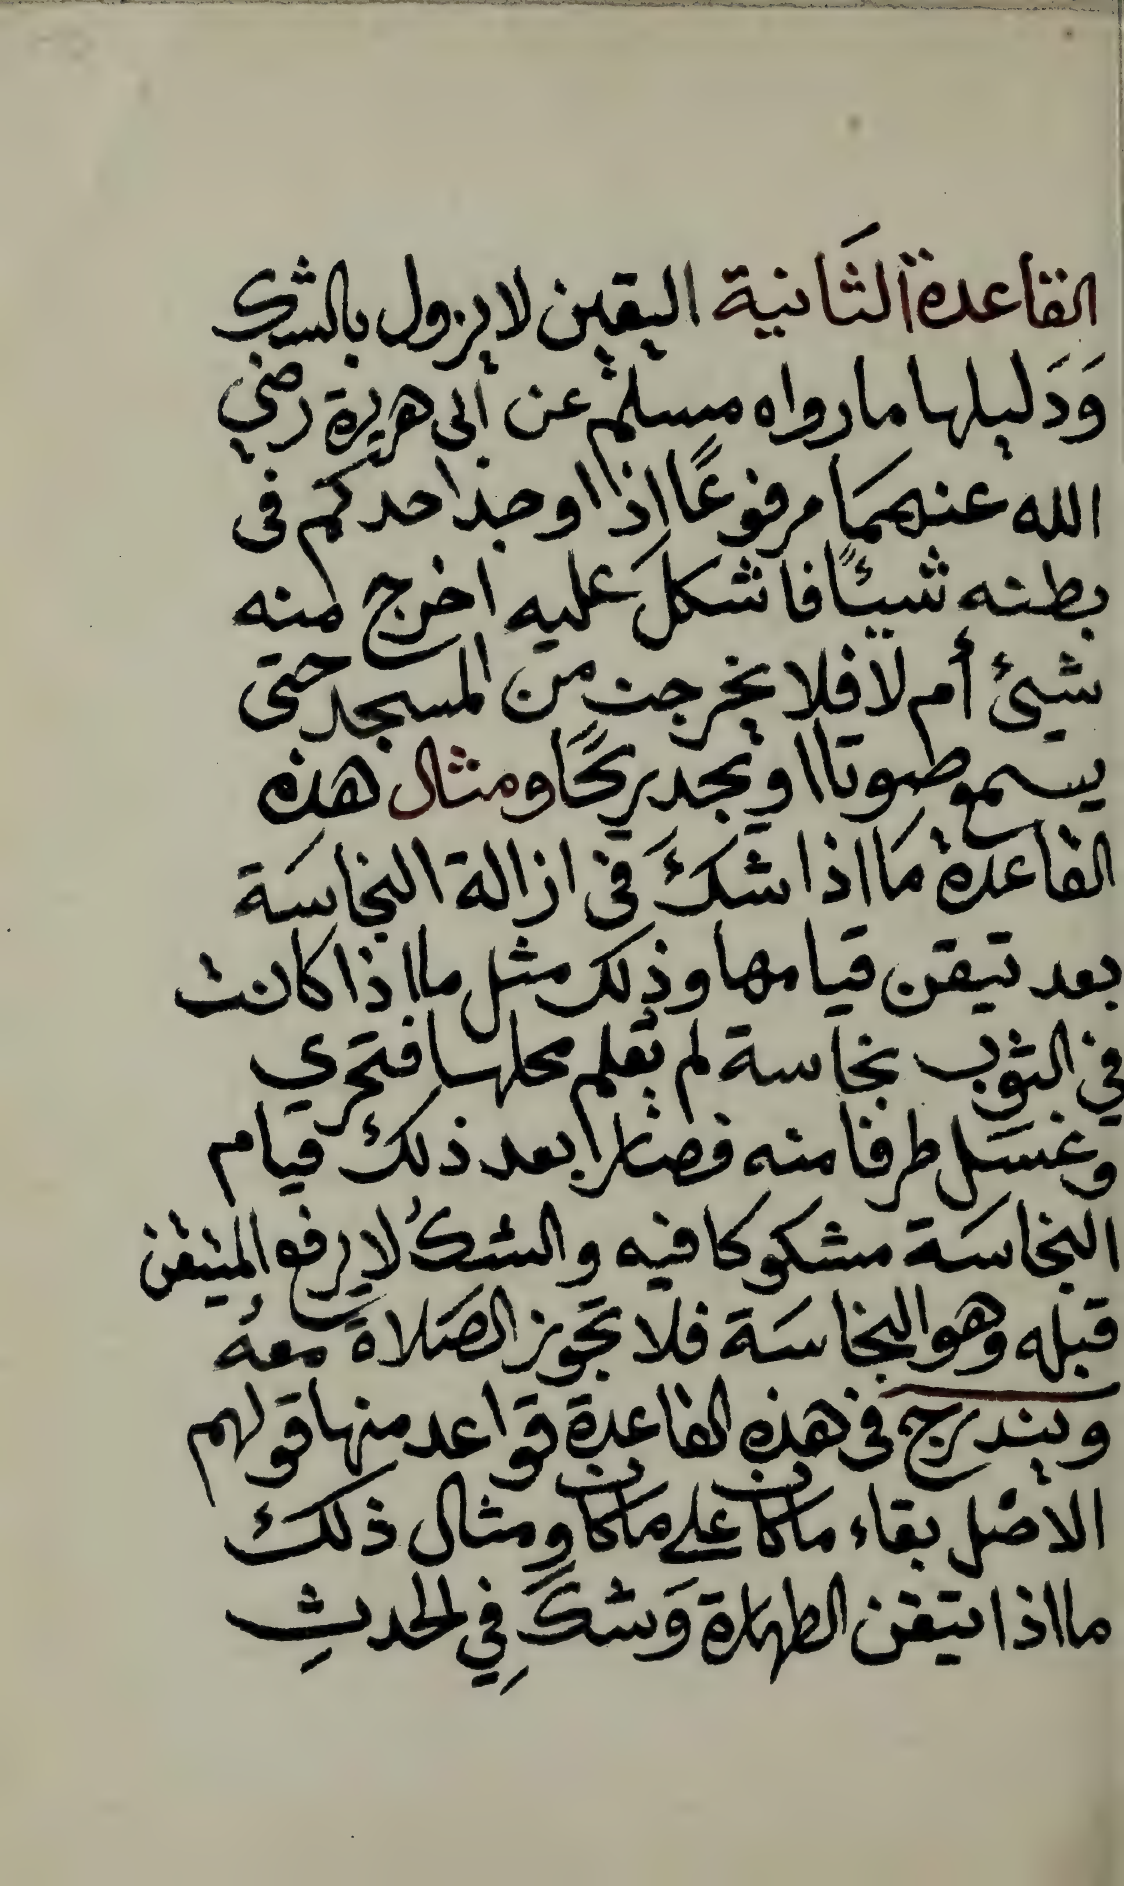 القاعدة الثَانية اليقين لا يزول بالشك
وَدَليلها ما رواه مسلم عن ابى هريرة رضي
الله عنهمَا مرفوعًا اذا اوجد احدكم فى
بطنه شيئًا فاشكلَ عليه اخرج منه
شيئ أم لا فلا يخرجن من المسجد حتى
يسمع صوتا او يجد ريحًا ومثال هذه
القاعدة مَا اذا شكَ في ازالة النجاسَة
بعد تيقن قيامها وذلك مثل ما اذا كانت
في الثوب نجاسة لم تعلم محلها فتحري
وغسَل طرفا منه فصار بعد ذلك قيام
النجاسَة مشكوكا فيه والشكُ لا يرفع المتيقن
قبله وهو النجاسَة فلا تجوز الصَلاة معهُ
ويندرج في هذه القاعدة قواعد منها قولهم
الأصْل بقاء ما كان على ما كان ومثال ذلك
ما اذا تيقن الطهارة وَشكَ فِي الحدثِ